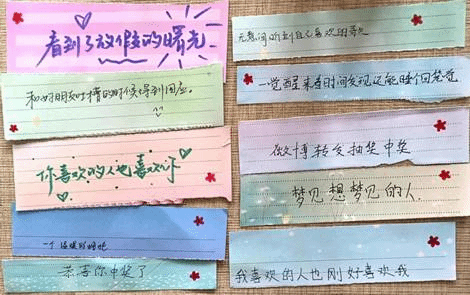 看到了放假的曙光
和好朋友吐槽的时候得到回应。
你喜欢的人也喜欢你
一个
恭喜你中奖了
无意间听到自己喜欢的歌
一觉醒来看时间发现还能睡个回笼觉
微博转发抽奖中奖
梦见想梦见的人
我喜欢的人也刚好喜欢我